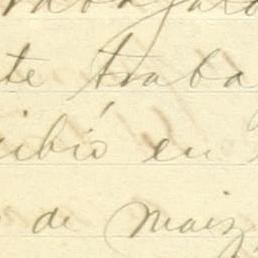 te traba
cibió en
de maiz